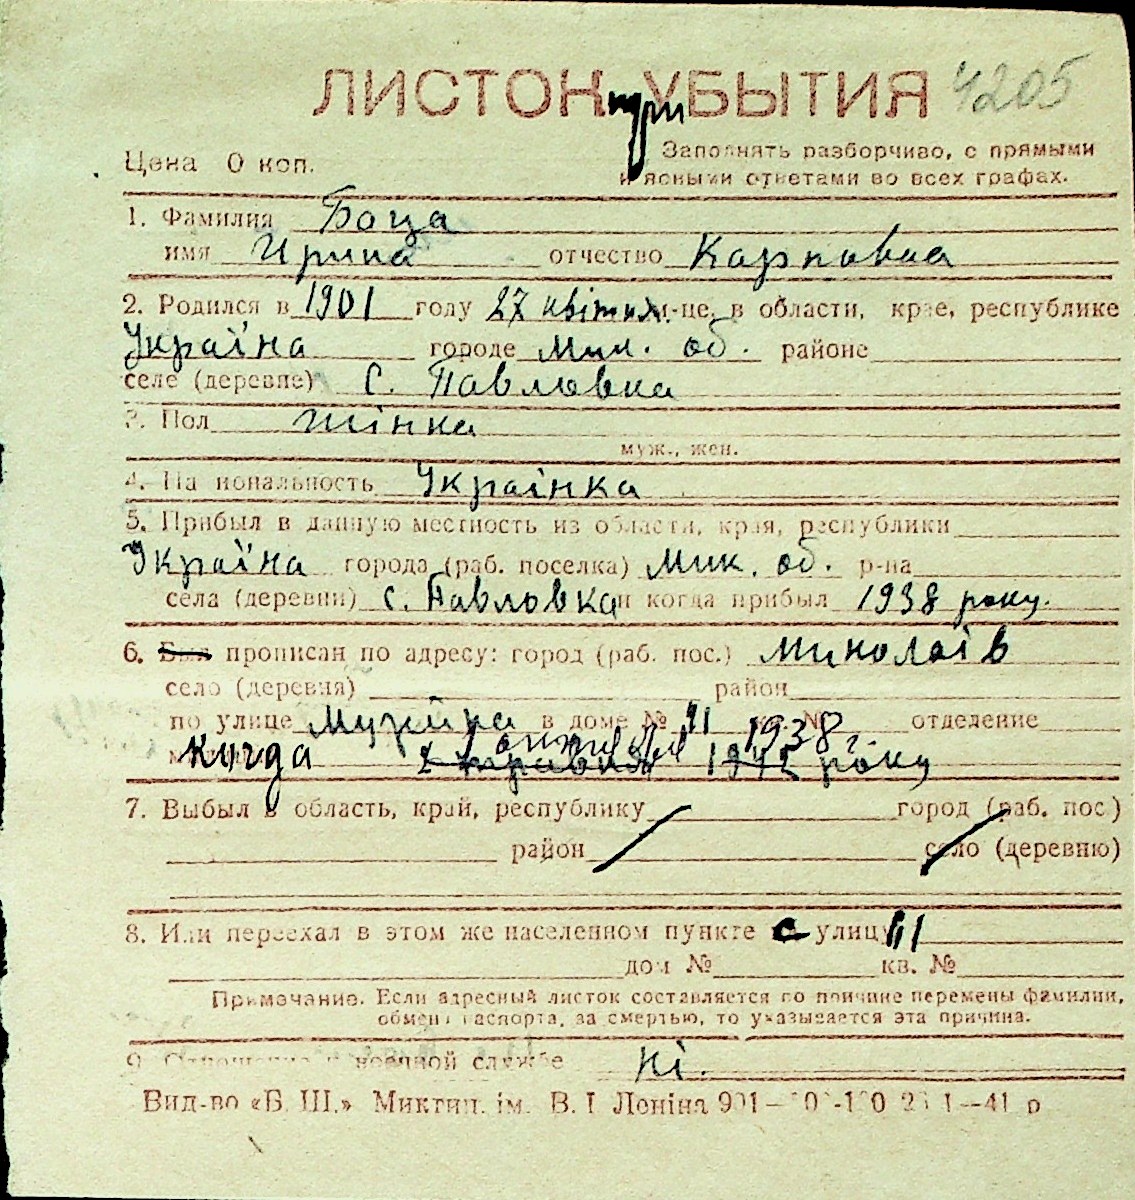 ЛИСТОК при УБЫТИЯ 4205
Цена 0 коп.
Заполнять разборчиво, с прямыми
и ясными ответами во всех графах.
1. Фамилия Боца
имя Ирина отчество Карповна
2. Родился в 1901 году 27 квітня м-це, в области, крае, республике
Україна городе Мик. об. районе
селе (деревне) С. Павловка
3. Пол жінка
муж., жен.
4. Национальность Українка
5. Прибыл в данную местность из области, края, республики
Україна города (раб. поселка) Мик. об. р-на
села (деревни) С. Павловка и когда прибыл 1938 року.
6. Был прописан по адресу: город (раб. пос.) Миколаїв
село (деревня) район
по улице в доме № 11 кв. № отделение
Когда 1938 г.
1942 року
7. Выбыл в область, край, республику город (раб. пос.)
район село (деревню)
8. Или переехал в этом же населенном пункте с улицы
дом № кв. №
Примечание. Если адресный листок составляется по причине перемены фамилии,
обмена паспорта, за смертью, то указывается эта причина.
9. Отношение к военной службе Ні.
Вид-во «Б. Ш.» Миктип. ім. В. І Леніна